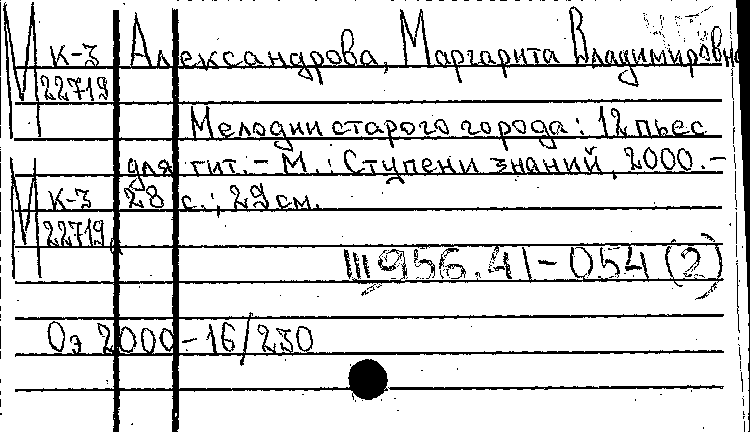 М к-3 Александрова, Маргарита Владимировна
22719
Мелодии старого города: 12 пьес
для гит. - М.: Ступени знаний, 2000. -
М к-3 28 с.; 29 см.
22719
Щ956.41-054(2)
Оэ 2000-16/230